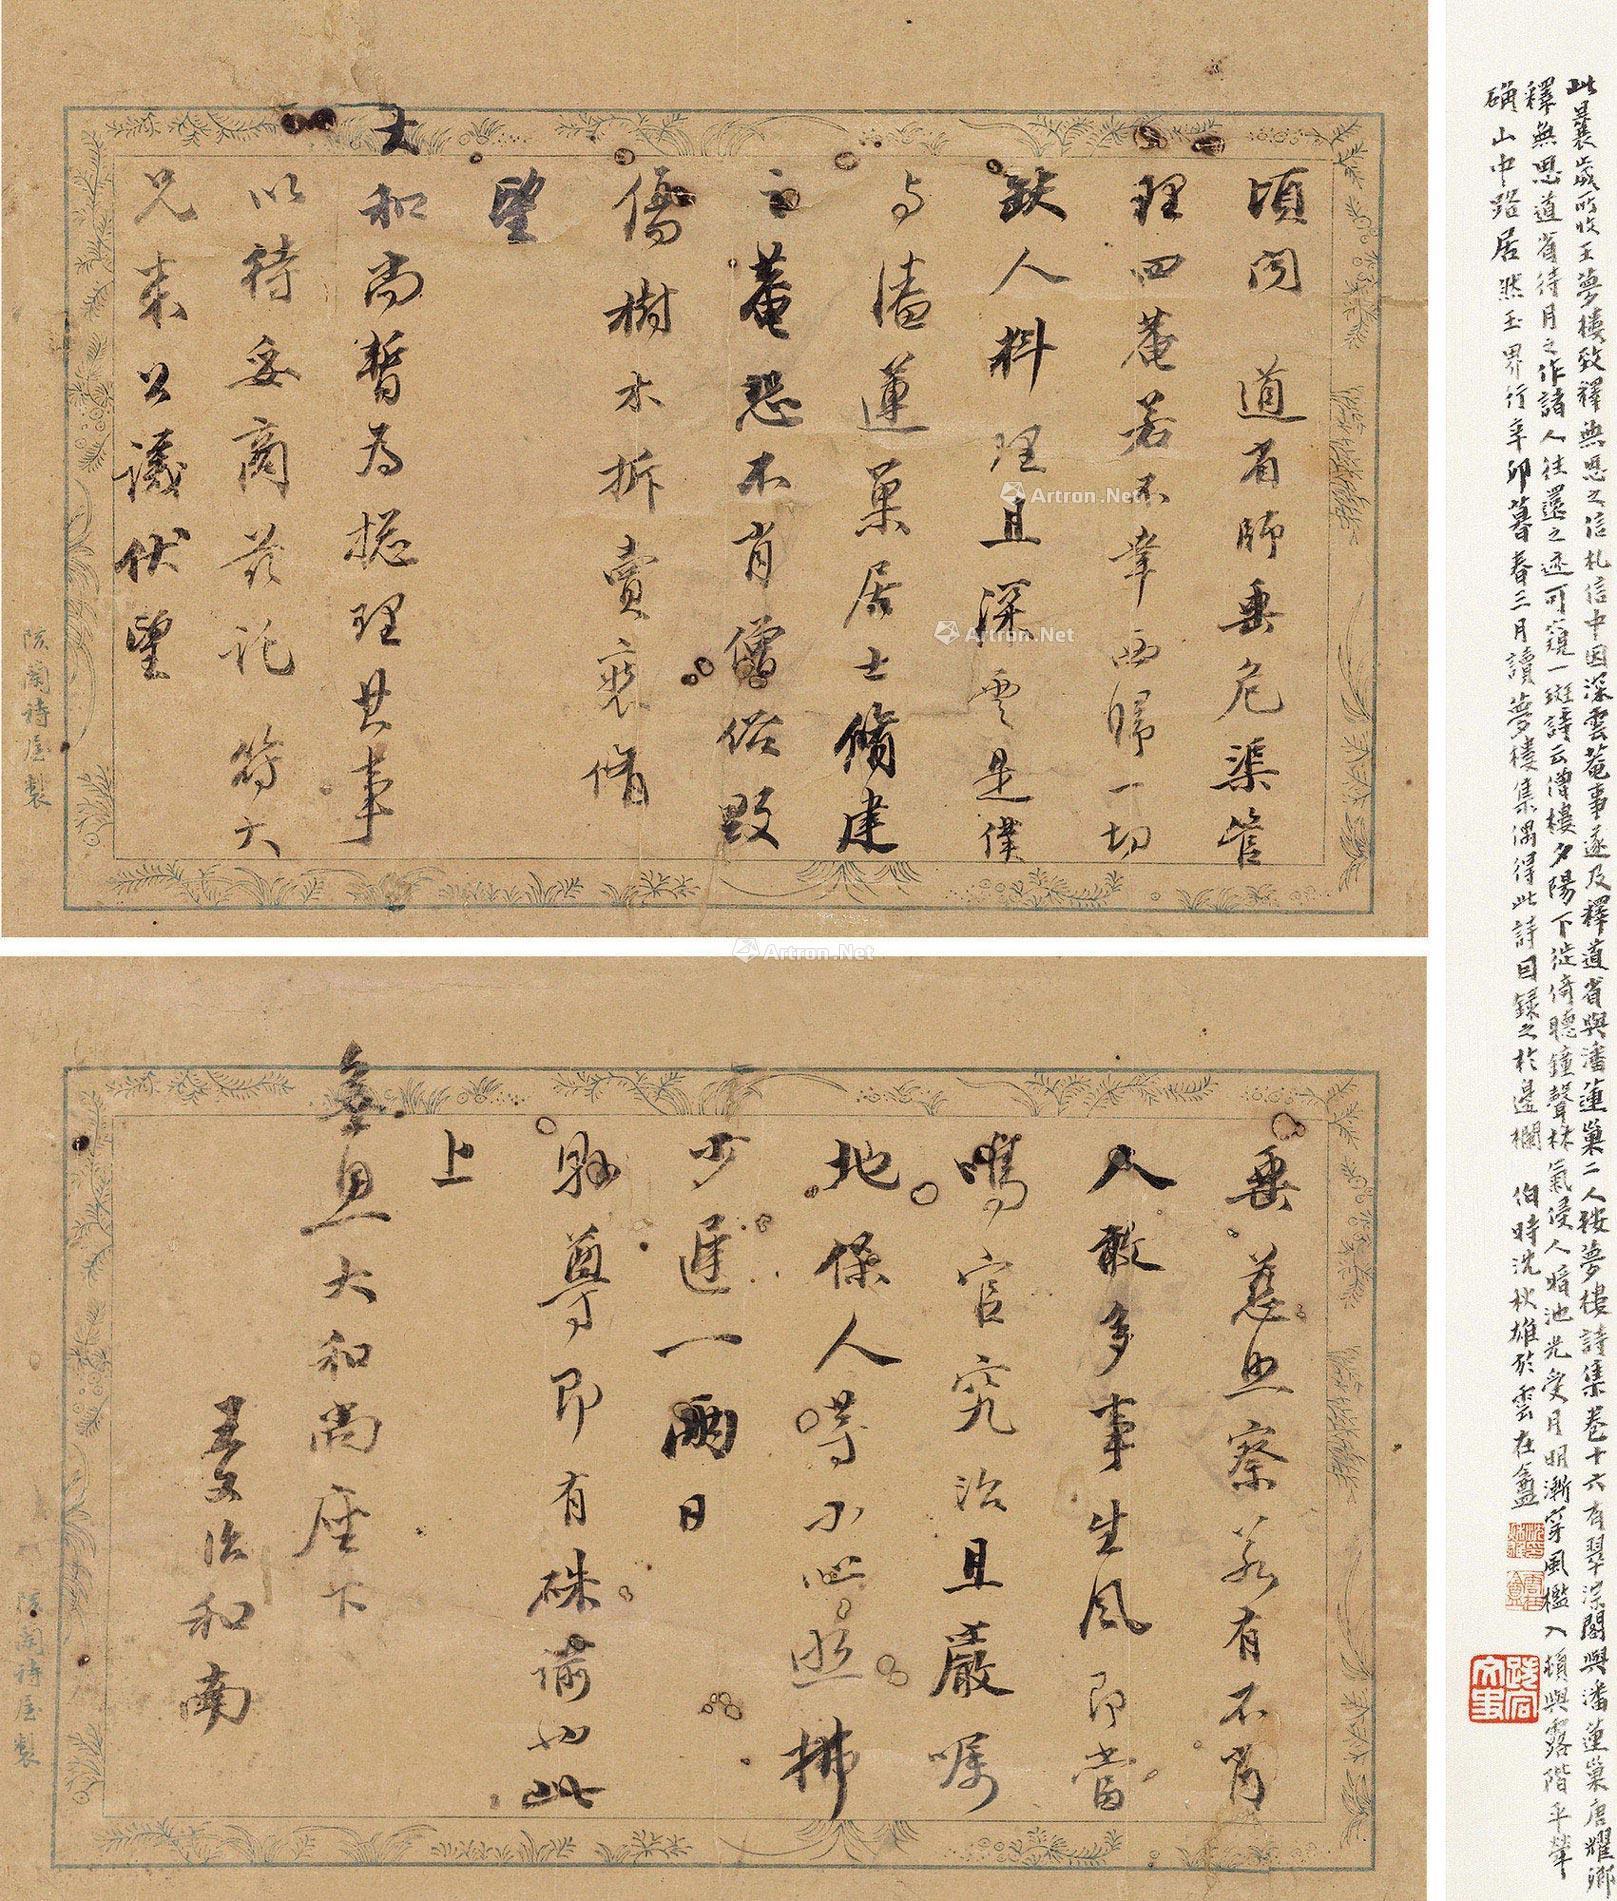 頃聞 道省師垂危渠管
理四菴若不幸西歸一切
缺人料理且深雲是僕
与潘蓮巢居士脩建
之菴恐不肖僧俗毀
傷樹木拆賣裝脩
望
大
和尚暫為揔理其事
以待妥商茲託 符六
兄来公議伏望
陔蘭詩屋製
垂慈照察若有不肖
人敢多事生風即當
鳴官究治且嚴嘱
地保人等小心照拂
少遲一兩日
縣尊即有硃諭也此
上
無思大和尚座下
王文治和南
陔蘭詩屋製
此曩歲所收王夢樓致釋無思之信札信中因深雲菴事遂及釋道省與潘蓮巢二人按夢樓詩集卷十六有翠深閣與潘蓮巢唐耀卿
釋無思道省待月之作諸人往還之迹可窺一斑詩云僧樓夕陽下徙倚聽鐘聲林氣侵人暗池光受月明漸穿風檻入頓與露階平犖
确山中路居然玉界行辛卯暮春三月讀夢樓集偶得此詩因録之於邊欄 伯時沈秋雄於雲在盦
Artron.Net
Artron.Net
Artron.Net